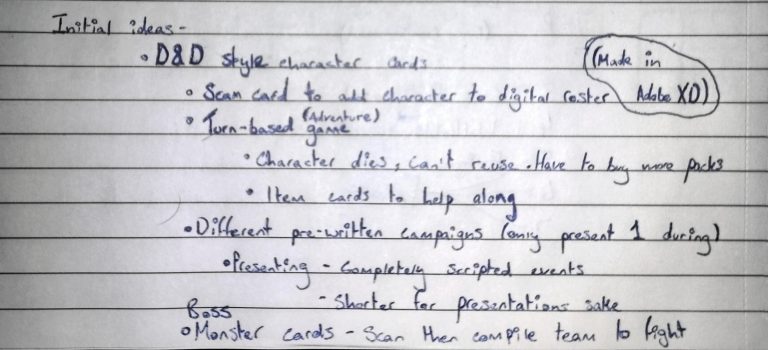 Initial ideas -
• D&D style character cards
(Made in
Adobe XD)
• Scan card to add character to digital roster
(Adventure)
• Turn-based game
• Character dies, can't reuse. Have to buy more packs
• Item cards to help along
• Different pre-written campaigns (only present 1 during)
• Presenting - Completely scripted events
- Shorter for presentations sake
Boss
• Monster cards - Scan then compile team to fight